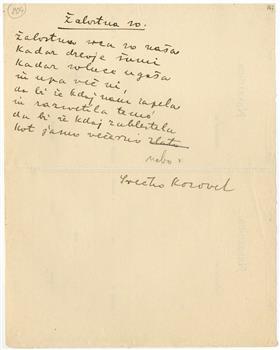 Žalostna so.
Žalostna srca so naša
kadar drevje šumi
kadar solnce ugaša
in upa več ni,
da bi še kdaj nam zapela
in razsvetlila temò,
da bi še kdaj zablestela
kot jasno večerno zlato
nebo.
Srečko Kosovel